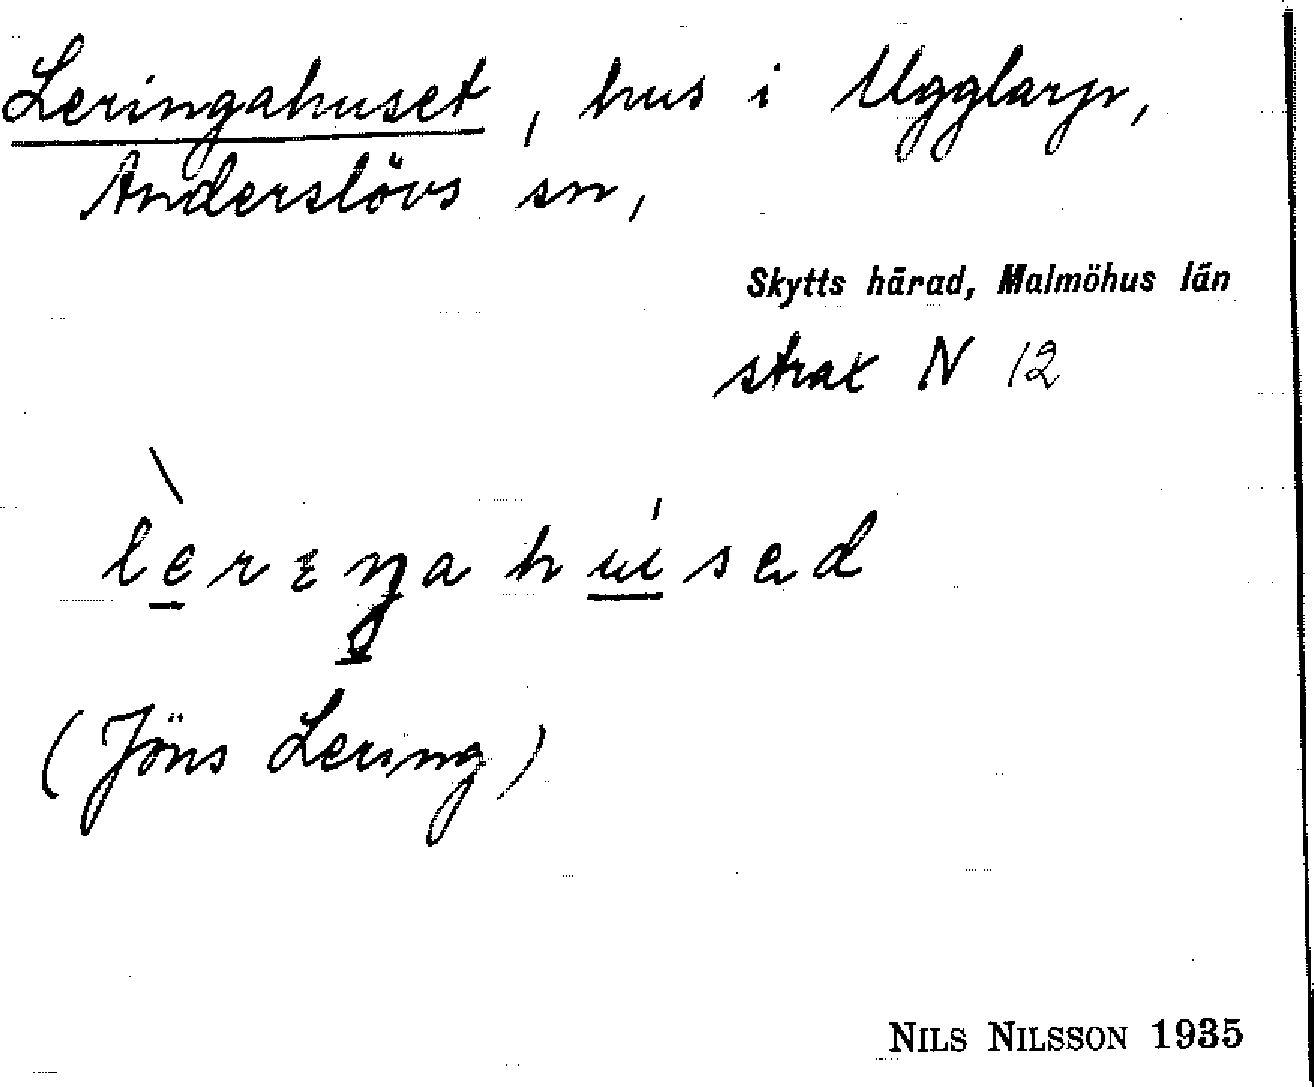 Leringahuset, hus i Ugglarp,
Anderslövs sn,
Skytts härad, Malmöhus län
strax N 12
(Jöns Lering)
NILS NILSSON 1935